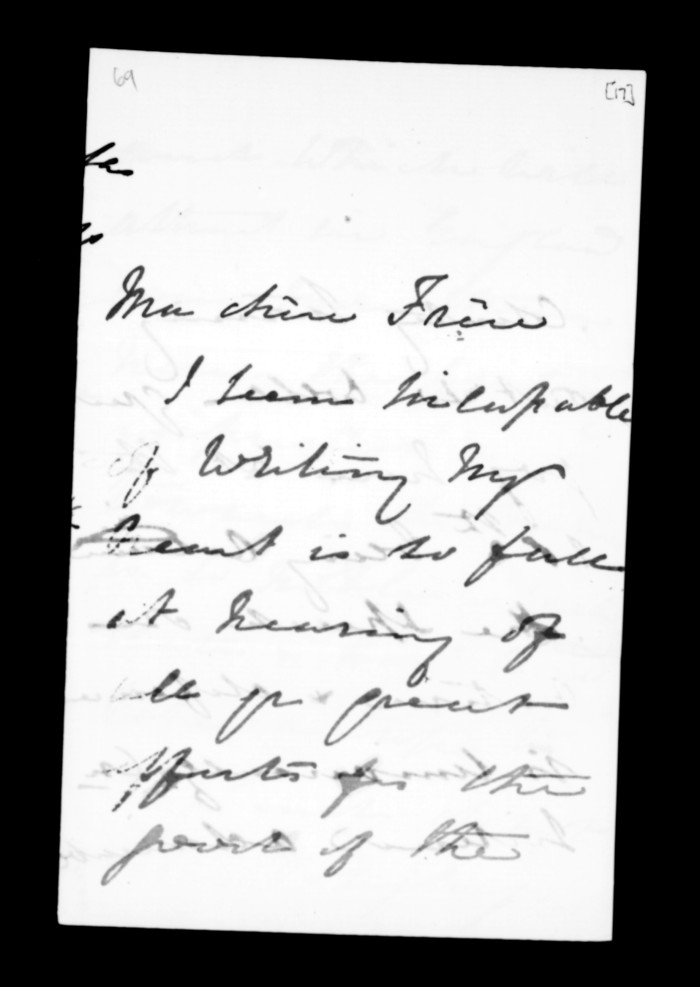 69
[17]
Mon chère Frère
I seem incapable
of writing my
heart is so full
at hearing of
all yr great
efforts for the
good of the